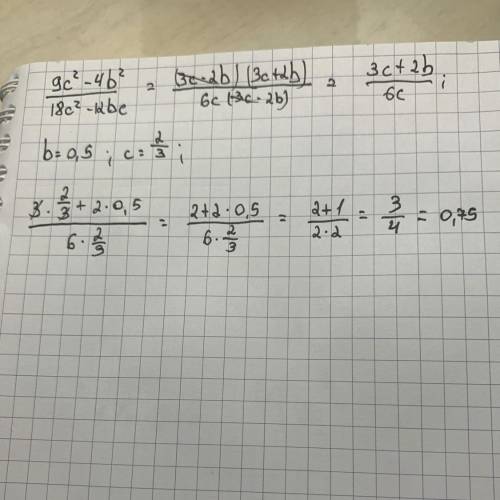 (9c² - 4b²)/(18c² - 12bc) = ((3c - 2b)(3c + 2b))/(6c(3c - 2b)) = (3c + 2b)/(6c);
b = 0,5; c = 2/3;
(3 · 2/3 + 2 · 0,5)/(6 · 2/3) = (2 + 2 · 0,5)/(6 · 2/3) = (2 + 1)/(2 · 2) = 3/4 = 0,75